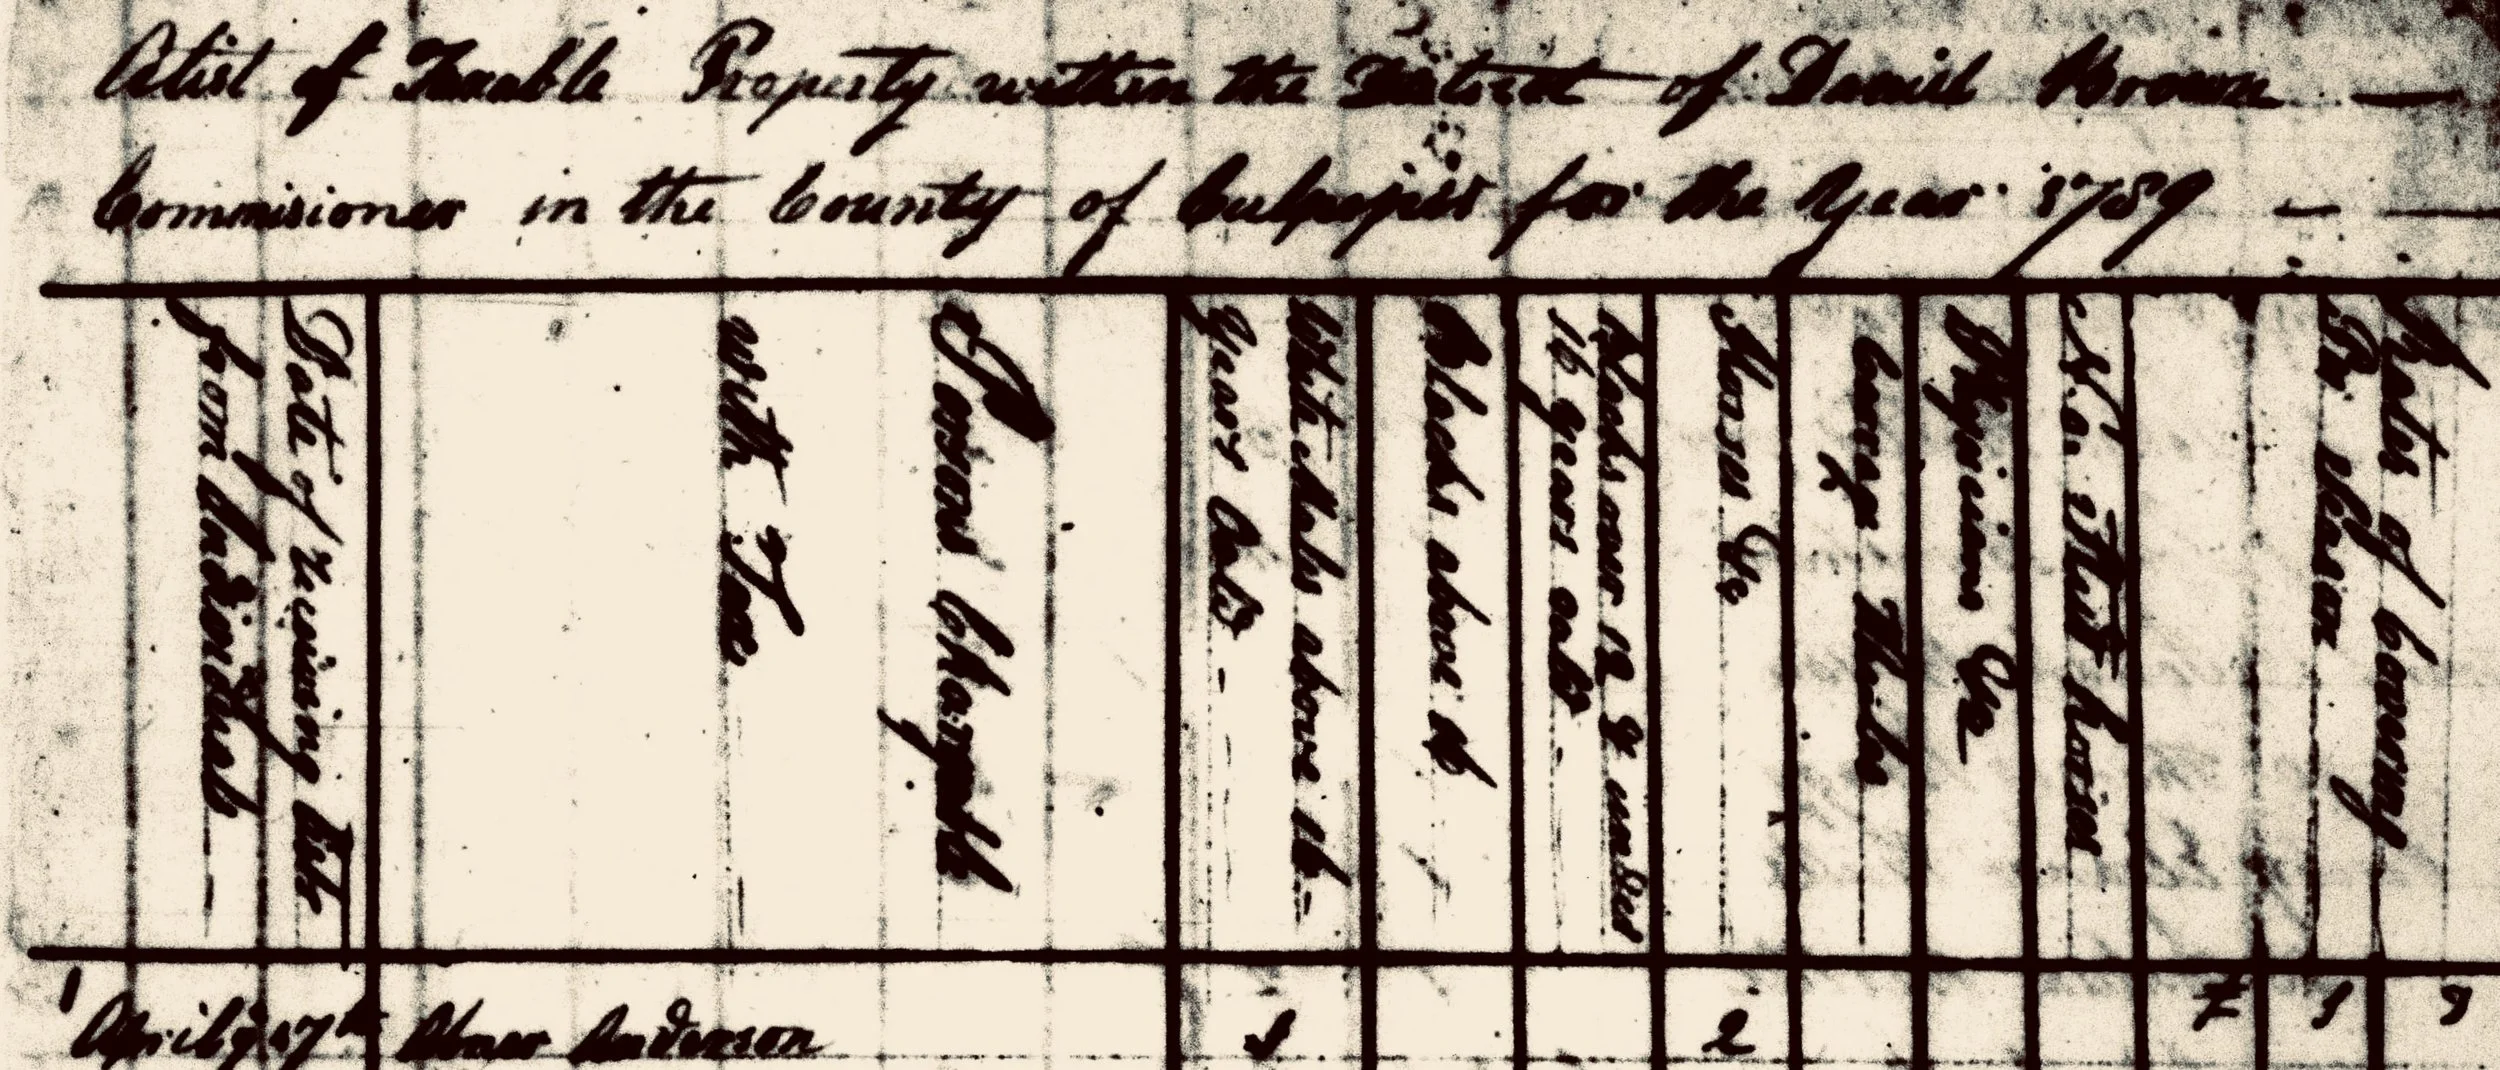 A List of Taxable Property within the District of Daniel Brown —
Commisioner in the County of Culpeper for the Year 1789 — —
Date of receiving Lists
from Individuals —
Persons Chargeable
with Tax
White Males above 16 —
Years Old
Blacks above 16
Blacks over 12 & under
16 years old
Horses &c
Carrage Wheels
Physicians &c
No. Stud horses
Rates of Covering
Pr. Season
1
April 17th Abner Anderson 1 2 £ s